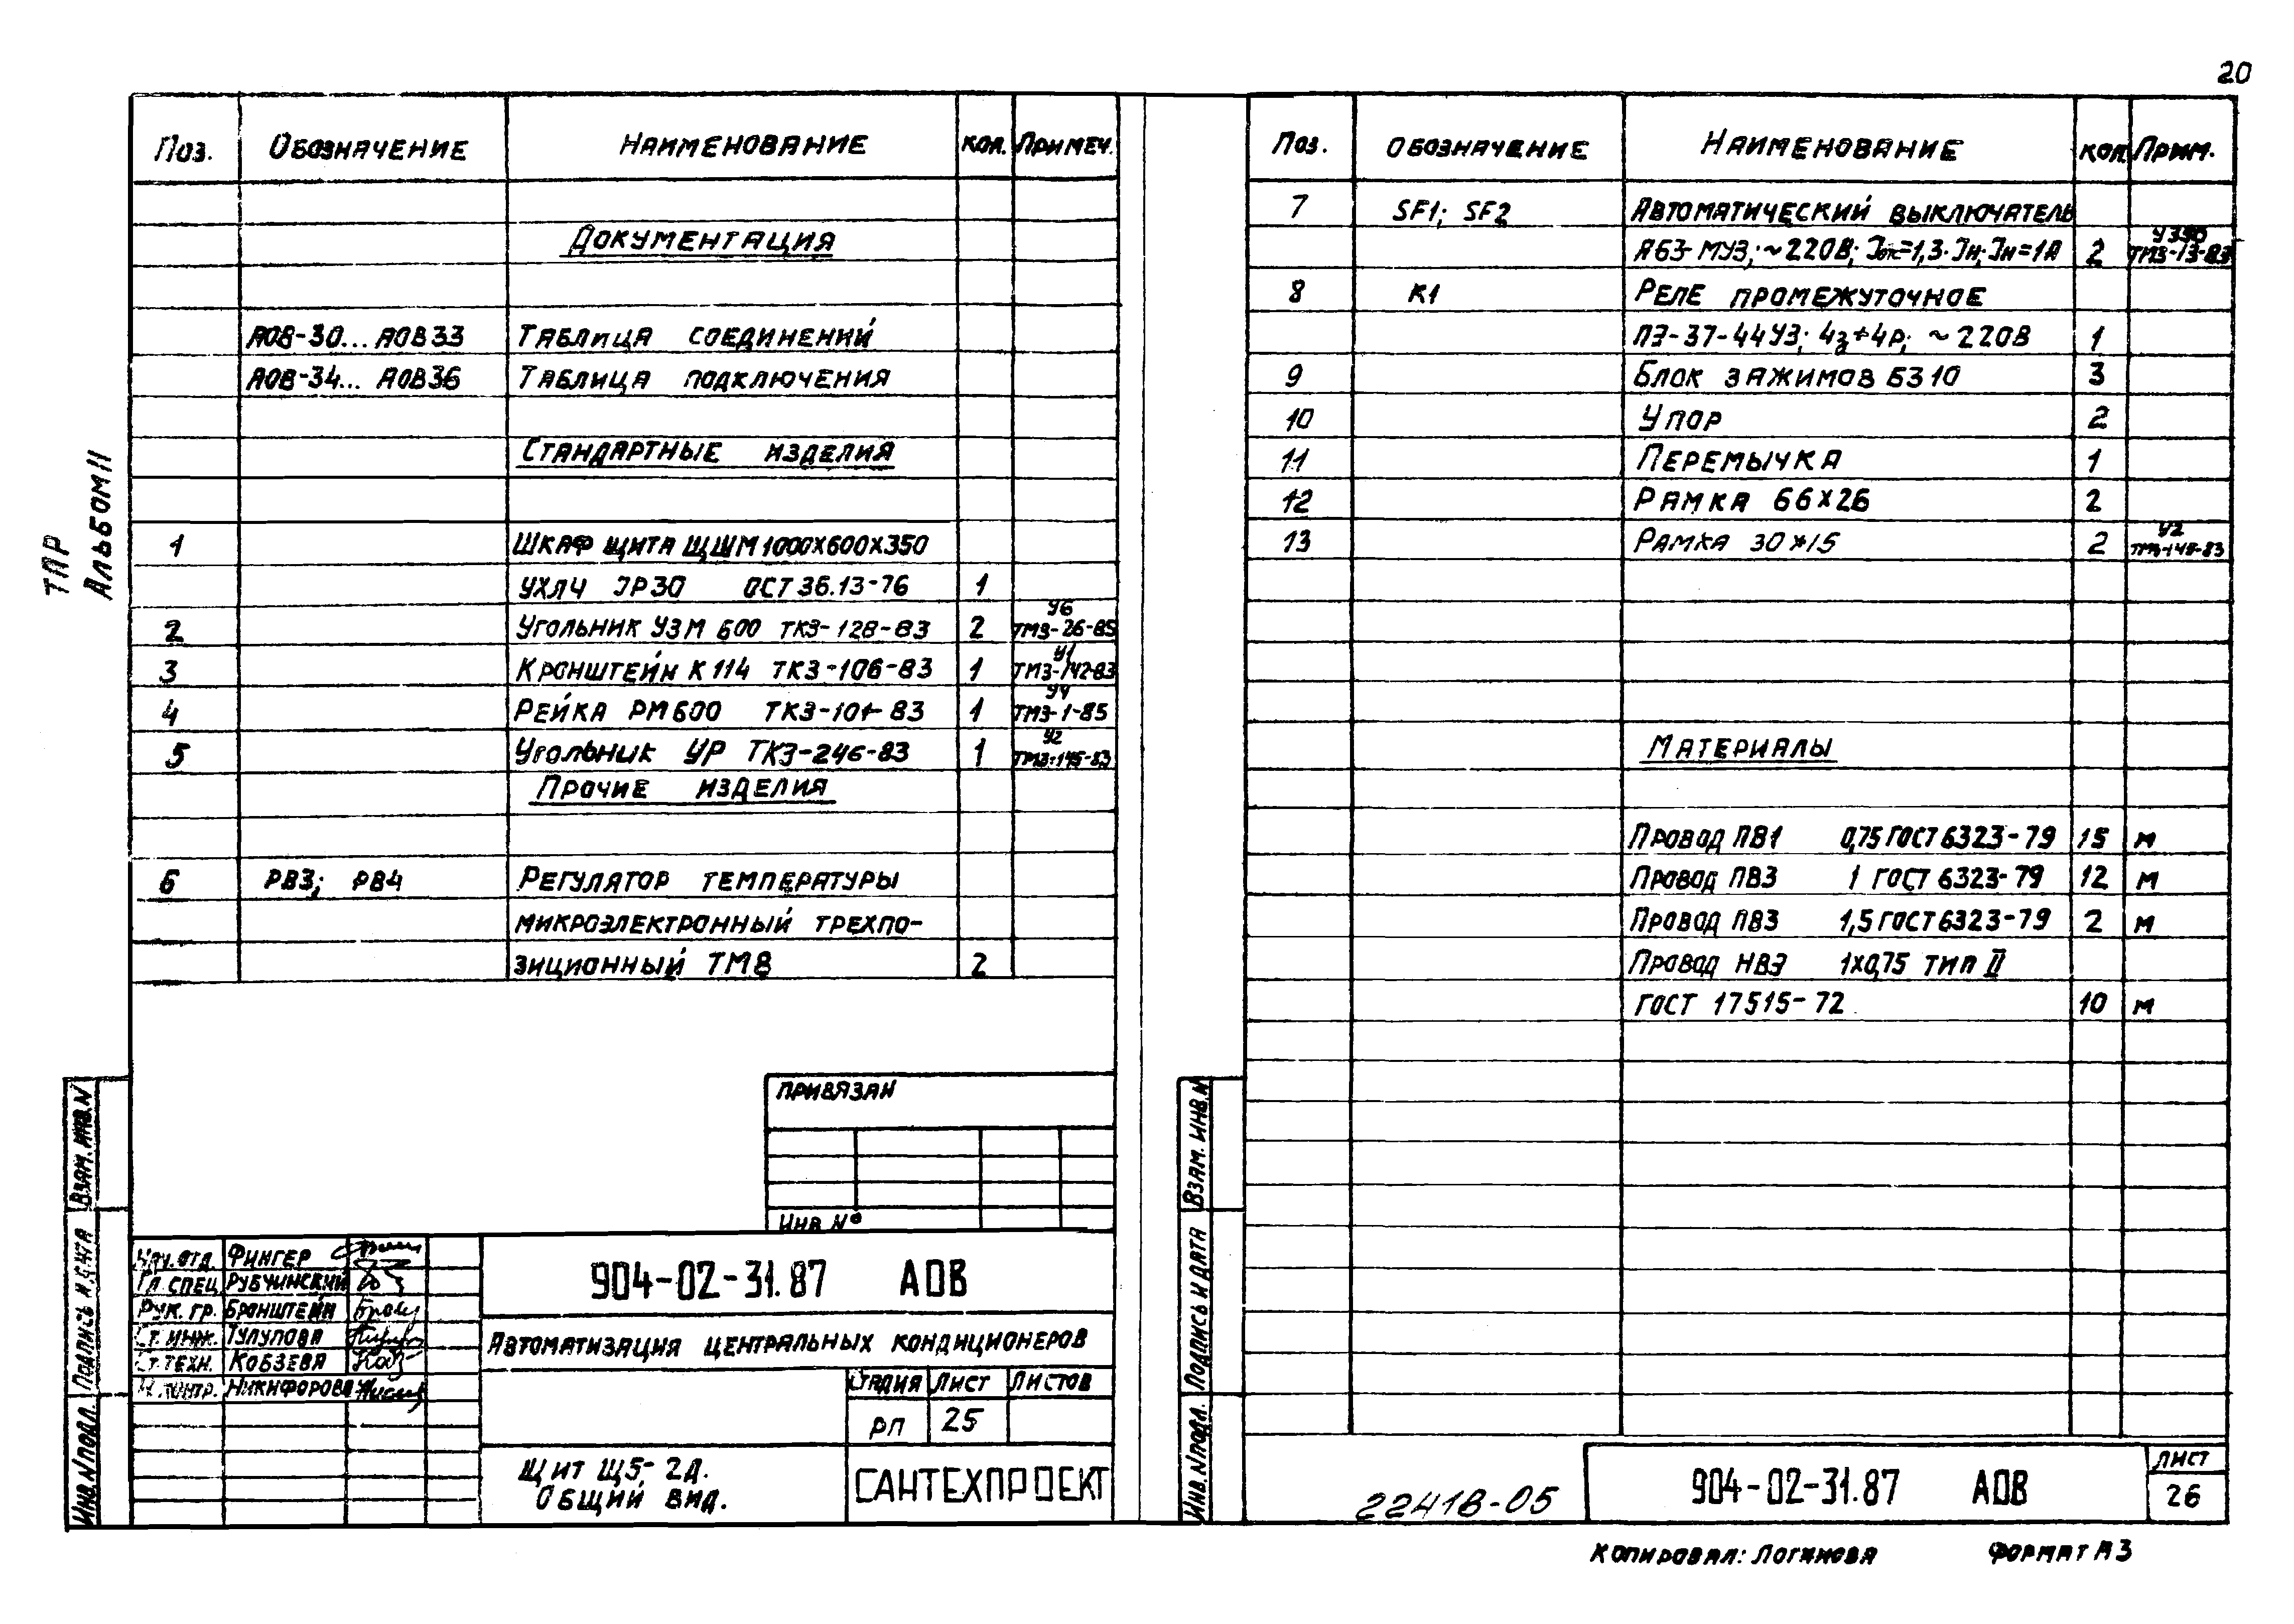 20
ТПР
Альбом II
Поз. Обозначение Наименование кол. Примеч.
Документация
АОВ-30... АОВ33 Таблица соединений
АОВ-34... АОВ36 Таблица подключения
Стандартные изделия
1 Шкаф щита ЩШМ 1000х600х350
УХЛЧ JP30 ОСТ 36.13-76 1
2 Угольник УЗМ 600 ТКЗ-128-83 2 У6 ТМЗ-26-85
3 Кронштейн К 114 ТКЗ-106-83 1 У1 ТМЗ-142-83
4 Рейка РМ600 ТКЗ-101-83 1 У4 ТМЗ-1-85
5 Угольник УР ТКЗ-246-83 1 У2 ТМЗ-145-83
Прочие изделия
6 РВ3; РВ4 Регулятор температуры
микроэлектронный трехпо-
зиционный ТМ8 2
Привязан
Инв №
Нач. отд. Фингер
Гл. спец. Рубчинский
Рук. гр. Бронштейн
Ст. инж. Тулупова
Ст. техн. Кобзева
Н. контр. Никифорова
904-02-31.87 АОВ
Автоматизация центральных кондиционеров
Стадия Лист Листов
РП 25
Щит Щ5-2Д.
Общий вид.
САНТЕХПРОЕКТ
Взам. инв. N
Подпись и дата
Инв. N подл.
Поз. Обозначение Наименование кол Прим.
7 SF1; SF2 Автоматический выключатель
А63-МУЗ; ~220В; =1,3·Iн; Iн=1А 2 ТМЗ-13-83
8 К1 Реле промежуточное
ПЭ-37-44УЗ; 4з+4р; ~220В 1
9 Блок зажимов БЗ10 3
10 Упор 2
11 Перемычка 1
12 Рамка 66х26 2
13 Рамка 30х15 2 У2 ТМЗ-145-83
Материалы
Провод ПВ1 0,75 ГОСТ 6323-79 15 м
Провод ПВ3 1 ГОСТ 6323-79 12 м
Провод ПВ3 1,5 ГОСТ 6323-79 2 м
Провод НВЭ 1х0,75 тип II
ГОСТ 17515-72 10 м
Взам. инв. N
Подпись и дата
Инв. N подл.
22418-05
904-02-31.87 АОВ
Лист
26
Копировал: Логинова Формат А3